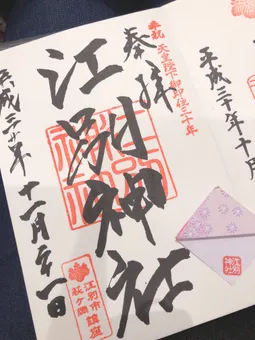 平成三十年十
奉祝 天皇陛下御即位三十年
奉拝
江別神社
平成三十年十一月
江別市
萩ヶ岡
鎮座
江別
神社